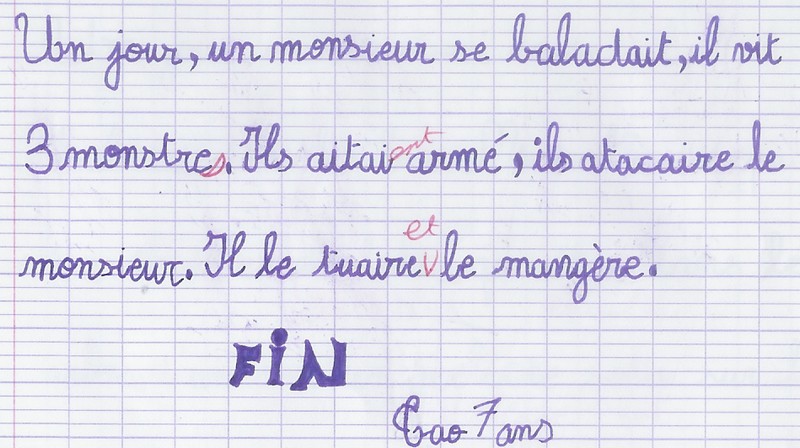 Un jour, un monsieur se baladait, il vit
3 monstres. Ils aitaient armé, ils atacaire le
monsieur. Il le tuaire et le mangère.
FIN
Cao 7 ans